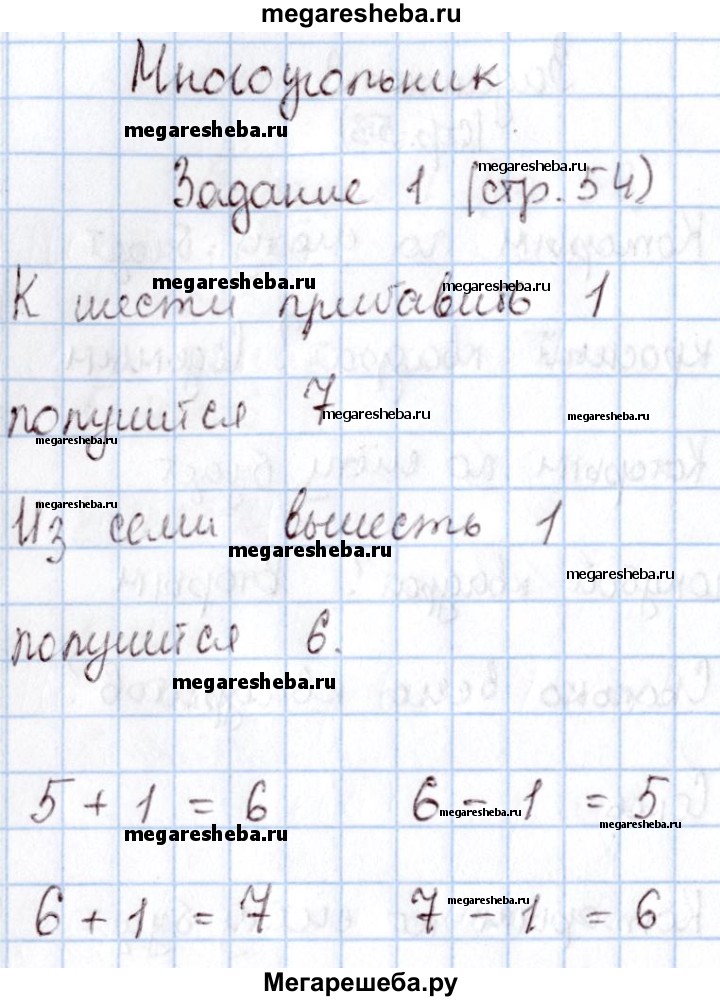 megaresheba.ru
Многоугольник
megaresheba.ru
megaresheba.ru
Задание 1 (стр. 54)
megaresheba.ru megaresheba.ru
К шести прибавить 1
получится 7
megaresheba.ru megaresheba.ru
megaresheba.ru
megaresheba.ru
Из семи вычесть 1
megaresheba.ru
megaresheba.ru
получится 6.
megaresheba.ru
5 + 1 = 6 6 - 1 = 5
megaresheba.ru megaresheba.ru megaresheba.ru
megaresheba.ru
6 + 1 = 7 7 - 1 = 6
Мегарешеба.ру